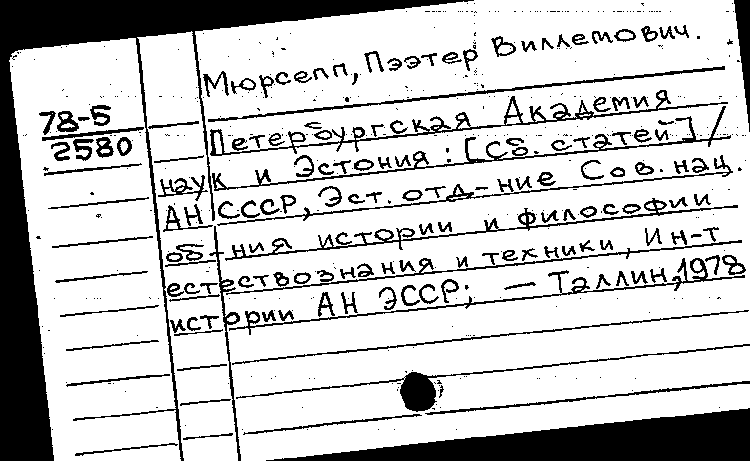 Мюрсепп, Пээтер Виллемович.
78-5
2580
Петербургская Академия
наук и Эстония : [Сб. статей] /
АН СССР, Эст. отд-ние Сов. нац.
об-ния истории и философии
естествознания и техники, Ин-т
истории АН ЭССР; — Таллин, 1978